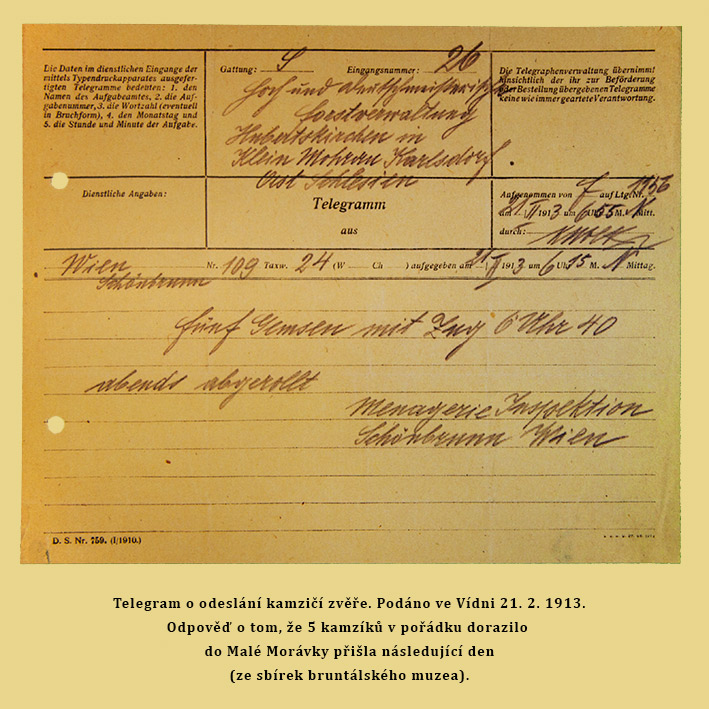 Die Daten im dienstlichen Eingange der
mittels Typendruckapparates ausgefer-
tigten Telegramme bedeuten: 1. den
Namen des Aufgabeamtes, 2. die Auf-
gabenummer, 3. die Wortzahl (eventuell
in Bruchform), 4. den Monatstag und
5. die Stunde und Minute der Aufgabe.
Gattung: S Eingangsnummer: 26
Hoch und Deutschmeisterische
Forstverwaltung
Hubertskirchen in
Klein Mohrau Karlsdorf
Öst Schlesien
Die Telegraphenverwaltung übernimmt
hinsichtlich der ihr zur Beförderung
oder Bestellung übergebenen Telegramme
keine wie immer geartete Verantwortung.
Dienstliche Angaben:
Telegramm
aus
Aufgenommen von auf Ltg. Nr. 1956
am 21 II 1913 um 6 Uhr 55 M. N Mitt.
durch:
Wien Nr. 109 Taxw. 24 (W Ch ) aufgegeben am 21 II 1913 um 6 Uhr 15 M. N Mittag.
Schönbrunn
fünf Gemsen mit Zug 6 Uhr 40
abends abgerollt
Menagerie Inspektion
Schönbrunn Wien
D. S. Nr. 759. (I/1910.)
Telegram o odeslání kamzičí zvěře. Podáno ve Vídni 21. 2. 1913.
Odpověď o tom, že 5 kamzíků v pořádku dorazilo
do Malé Morávky přišla následující den
(ze sbírek bruntálského muzea).